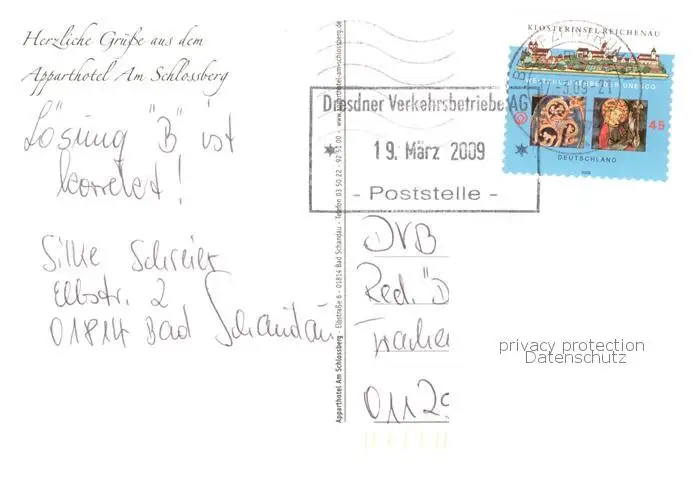 Herzliche Grüße aus dem
Apparthotel Am Schlossberg
Lösung "B" ist
korrekt!
Silke Schreier
Elbstr. 2
01814 Bad Schandau
Apparthotel Am Schlossberg - Elbstraße 6 - 01814 Bad Schandau - Telefon 03 50 22 - 92 55 00 - www.apparthotel-am-schlossberg.de
Dresdner Verkehrsbetriebe AG
19. März 2009
- Poststelle -
KLOSTERINSEL REICHENAU
WELTKULTURERBE DER UNESCO
45
DEUTSCHLAND
2008
BRIEFZENTRUM
DVB
Red. "D
Trache
0112
privacy protection
Datenschutz